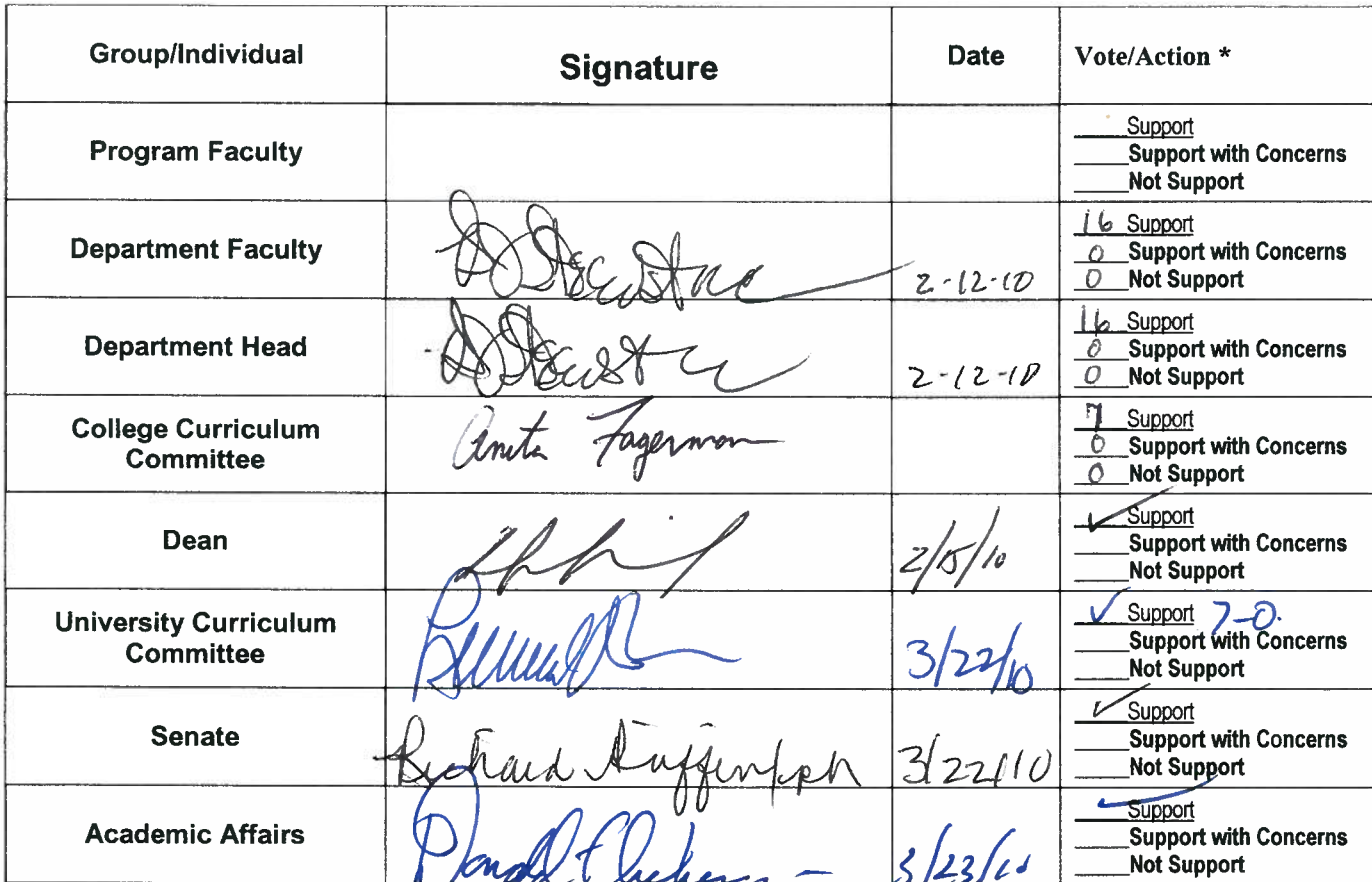 Group/Individual Signature Date Vote/Action *
Program Faculty
Support
Support with Concerns
Not Support
Department Faculty 2-12-10
16 Support
0 Support with Concerns
0 Not Support
Department Head 2-12-10
16 Support
0 Support with Concerns
0 Not Support
College Curriculum
Committee
Anita Fagerman
7 Support
0 Support with Concerns
0 Not Support
Dean 2/15/10
✓ Support
Support with Concerns
Not Support
University Curriculum
Committee
3/22/10
✓ Support 7-0.
Support with Concerns
Not Support
Senate Richard 3/22/10
✓ Support
Support with Concerns
Not Support
Academic Affairs Donald 3/23/10
✓ Support
Support with Concerns
Not Support